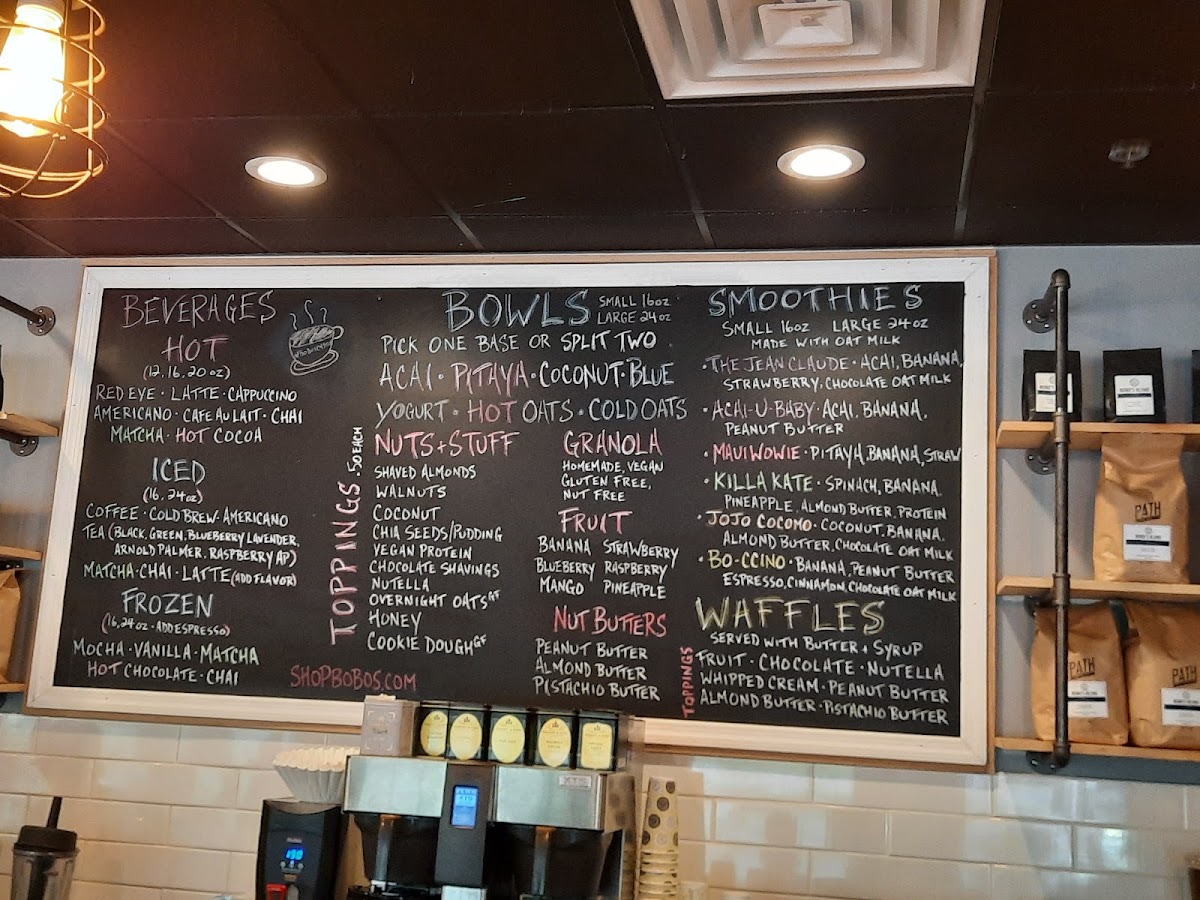 BEVERAGES
HOT
(12, 16, 20 oz)
RED EYE · LATTE · CAPPUCCINO
AMERICANO · CAFE AU LAIT · CHAI
MATCHA · HOT COCOA
ICED
(16, 24 oz)
COFFEE · COLD BREW · AMERICANO
TEA (BLACK, GREEN, BLUEBERRY LAVENDER,
ARNOLD PALMER, RASPBERRY AP)
MATCHA · CHAI · LATTE (ADD FLAVOR)
FROZEN
(16, 24 oz · ADD ESPRESSO)
MOCHA · VANILLA · MATCHA
HOT CHOCOLATE · CHAI
SHOPBOBOS.COM
BOWLS SMALL 16oz
LARGE 24 oz
PICK ONE BASE OR SPLIT TWO
ACAI · PITAYA · COCONUT · BLUE
YOGURT · HOT OATS · COLD OATS
TOPPINGS .50 EACH
NUTS + STUFF
SHAVED ALMONDS
WALNUTS
COCONUT
CHIA SEEDS/PUDDING
VEGAN PROTEIN
CHOCOLATE SHAVINGS
NUTELLA
OVERNIGHT OATS GF
HONEY
COOKIE DOUGH GF
GRANOLA
HOMEMADE, VEGAN
GLUTEN FREE,
NUT FREE
FRUIT
BANANA STRAWBERRY
BLUEBERRY RASPBERRY
MANGO PINEAPPLE
NUT BUTTERS
PEANUT BUTTER
ALMOND BUTTER
PISTACHIO BUTTER
SMOOTHIES
SMALL 16oz LARGE 24 oz
MADE WITH OAT MILK
· THE JEAN CLAUDE · ACAI, BANANA,
STRAWBERRY, CHOCOLATE OAT MILK
· ACAI-U-BABY · ACAI, BANANA,
PEANUT BUTTER
· MAUI WOWIE · PITAYA, BANANA, STRAW
· KILLA KATE · SPINACH, BANANA,
PINEAPPLE, ALMOND BUTTER, PROTEIN
· JOJO COCOMO · COCONUT, BANANA,
ALMOND BUTTER, CHOCOLATE OAT MILK
· BO-CCINO · BANANA, PEANUT BUTTER
ESPRESSO, CINNAMON, CHOCOLATE OAT MILK
WAFFLES
SERVED WITH BUTTER + SYRUP
TOPPINGS
FRUIT · CHOCOLATE · NUTELLA
WHIPPED CREAM · PEANUT BUTTER
ALMOND BUTTER · PISTACHIO BUTTER
PATH
PATH
PATH